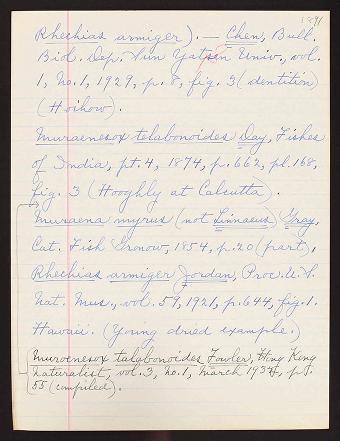 1891
Rhechias armiger). — Chen, Bull.
Biol. Dep. Sun Yatsen Univ., vol.
1, No. 1, 1929, p. 8, fig. 3 (dentition)
(Hoihow).
Muraenesox telabonoides Day, Fishes
of India, pt. 4, 1874, p. 662, pl. 168,
fig. 3 (Hooghly at Calcutta).
Muraena myrus (not Linnaeus) Gray,
Cat. Fish Gronow, 1854, p. 20 (part),
Rhechias armiger Jordan, Proc. U. S.
Nat. Mus., vol. 59, 1921, p. 644, fig. 1.
Hawaii. (Young dried example.)
Muraenesox talabonoides Fowler, Hong Kong
Naturalist, vol. 3, No. 1, March 1932, p.
55 (compiled).